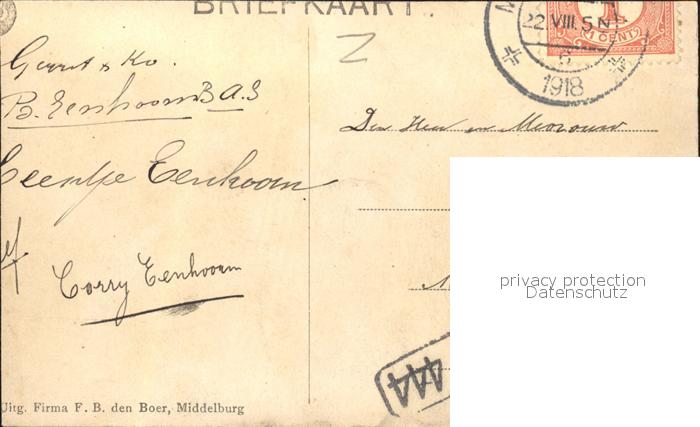 BRIEFKAART
Gerrit & Ko.
B. Eenhoorn B A S
Eenhoorn
Corry Eenhoorn
Uitg. Firma F. B. den Boer, Middelburg
Z
M
22 VIII 5 N
1918
1 CENT
Den Heer en Mevrouw
privacy protection
Datenschutz
444